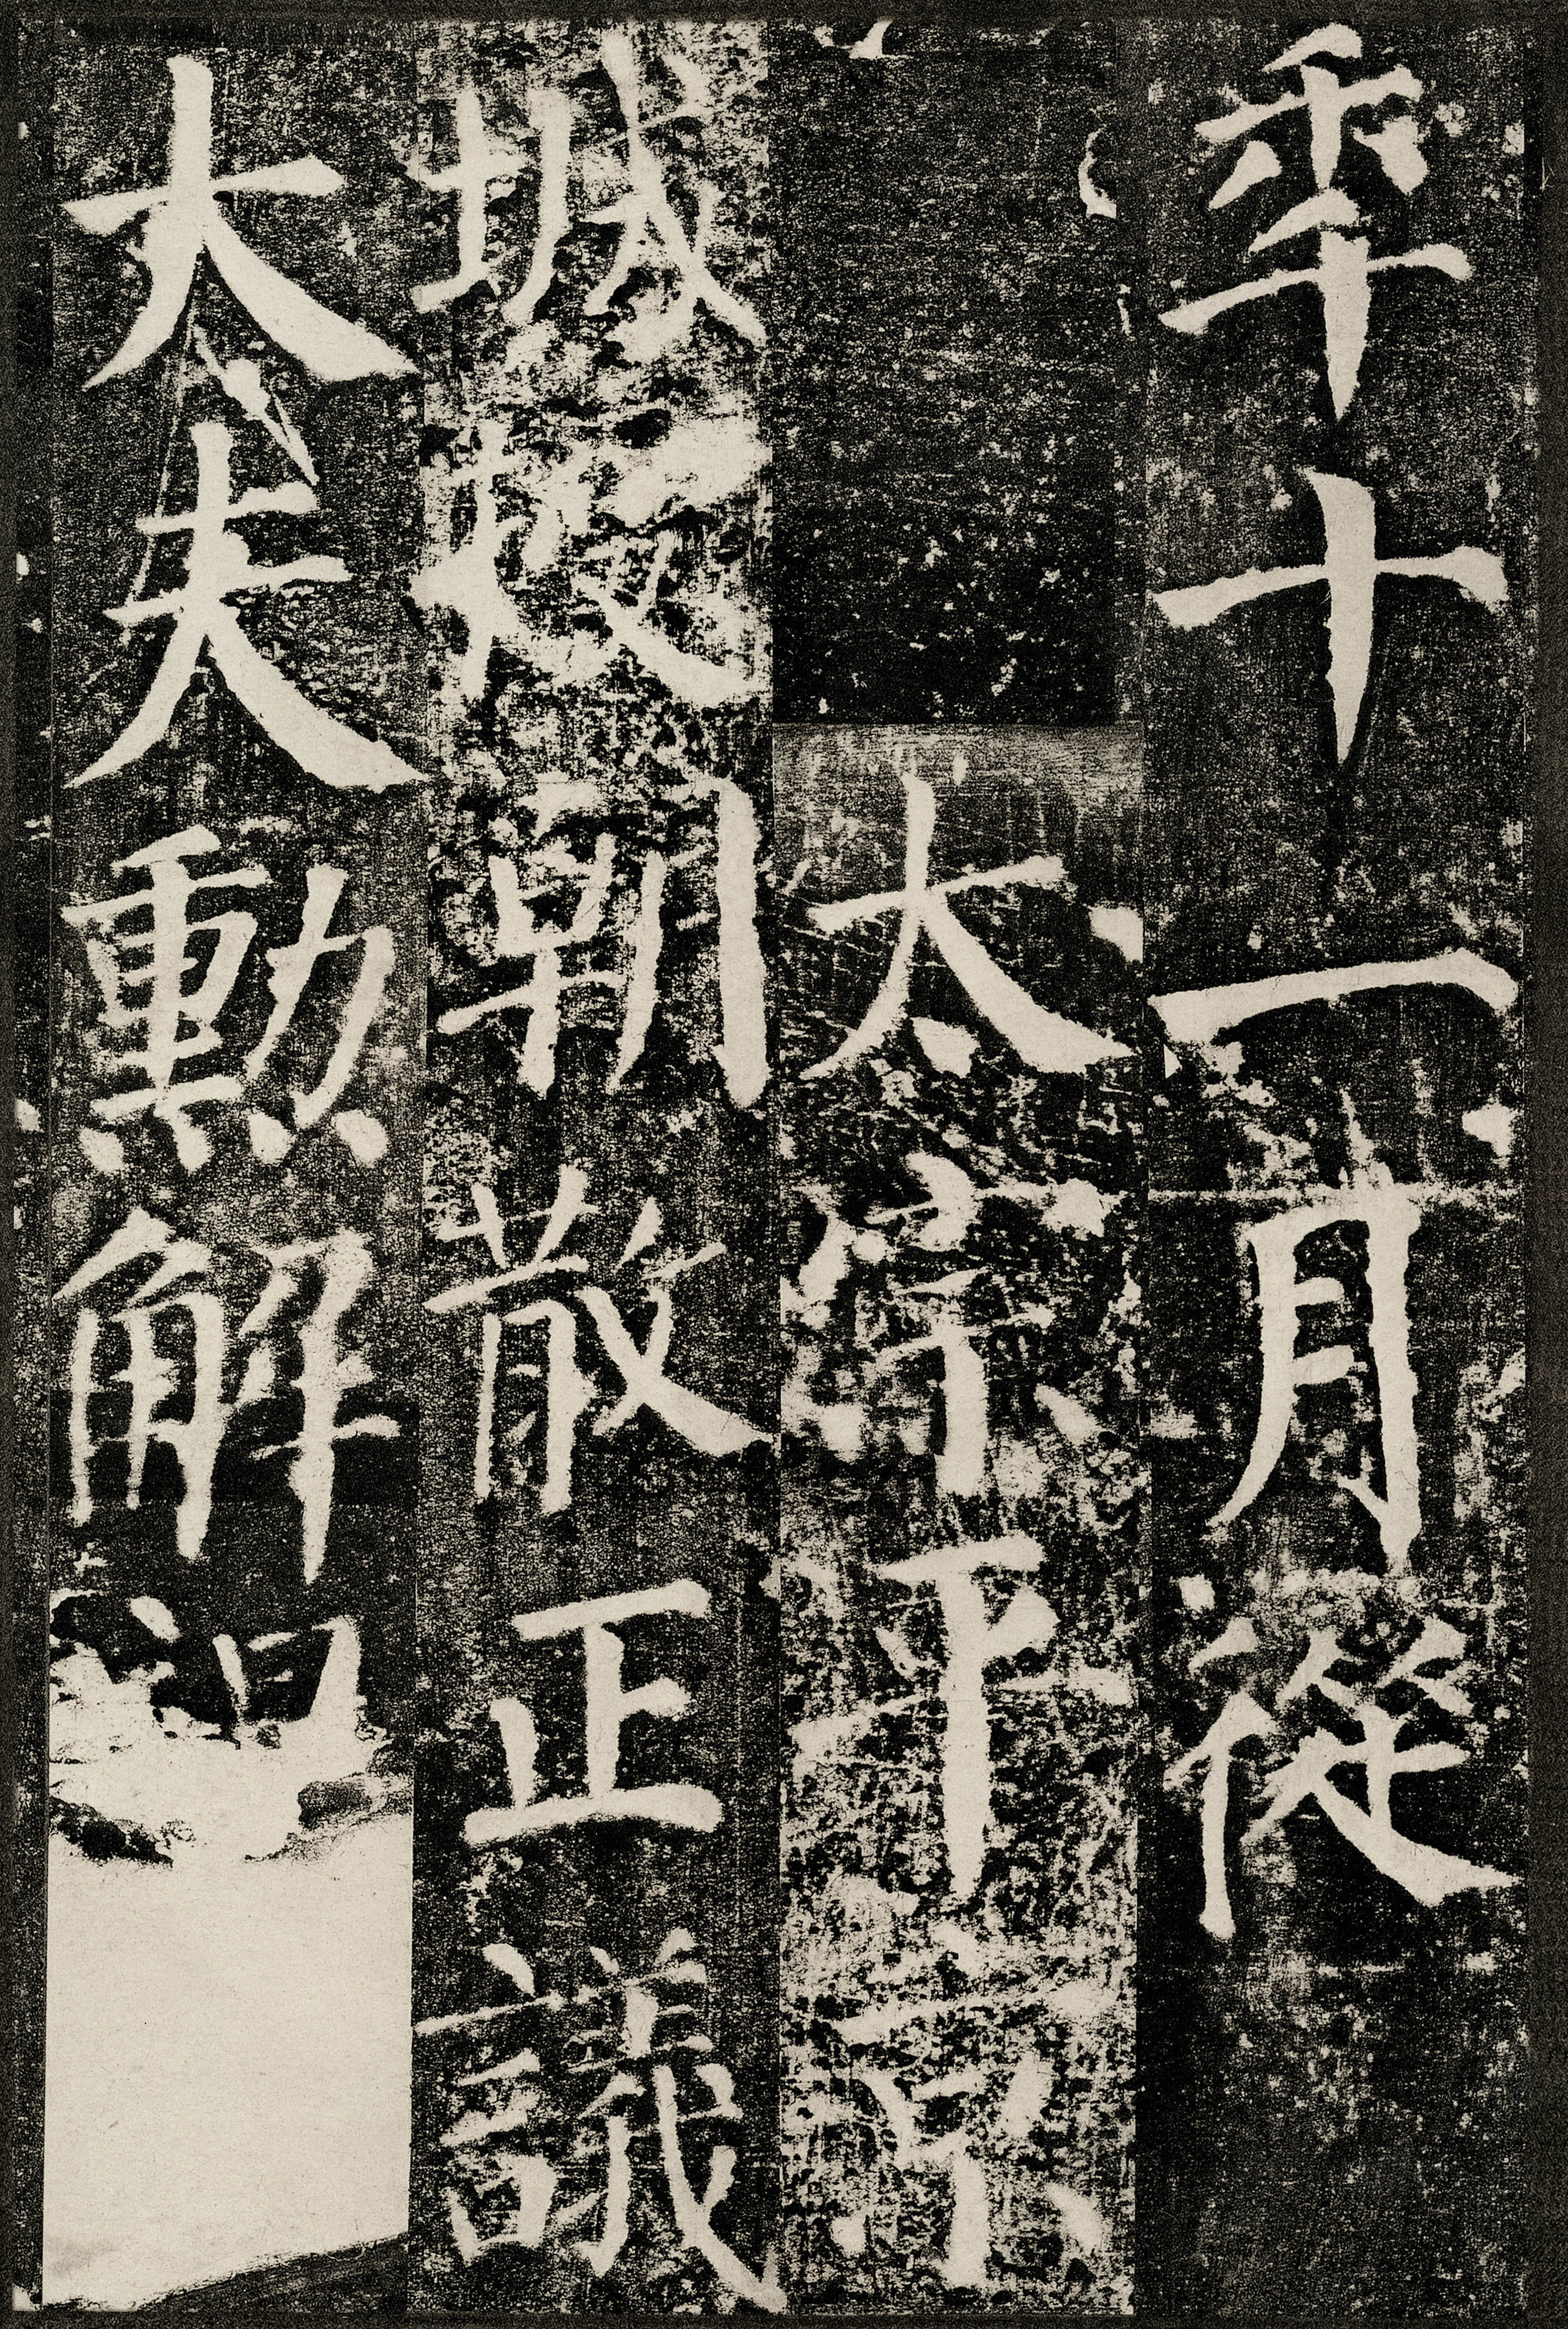 秊十一月從
太宗平京
城授朝散正議
大夫勳解